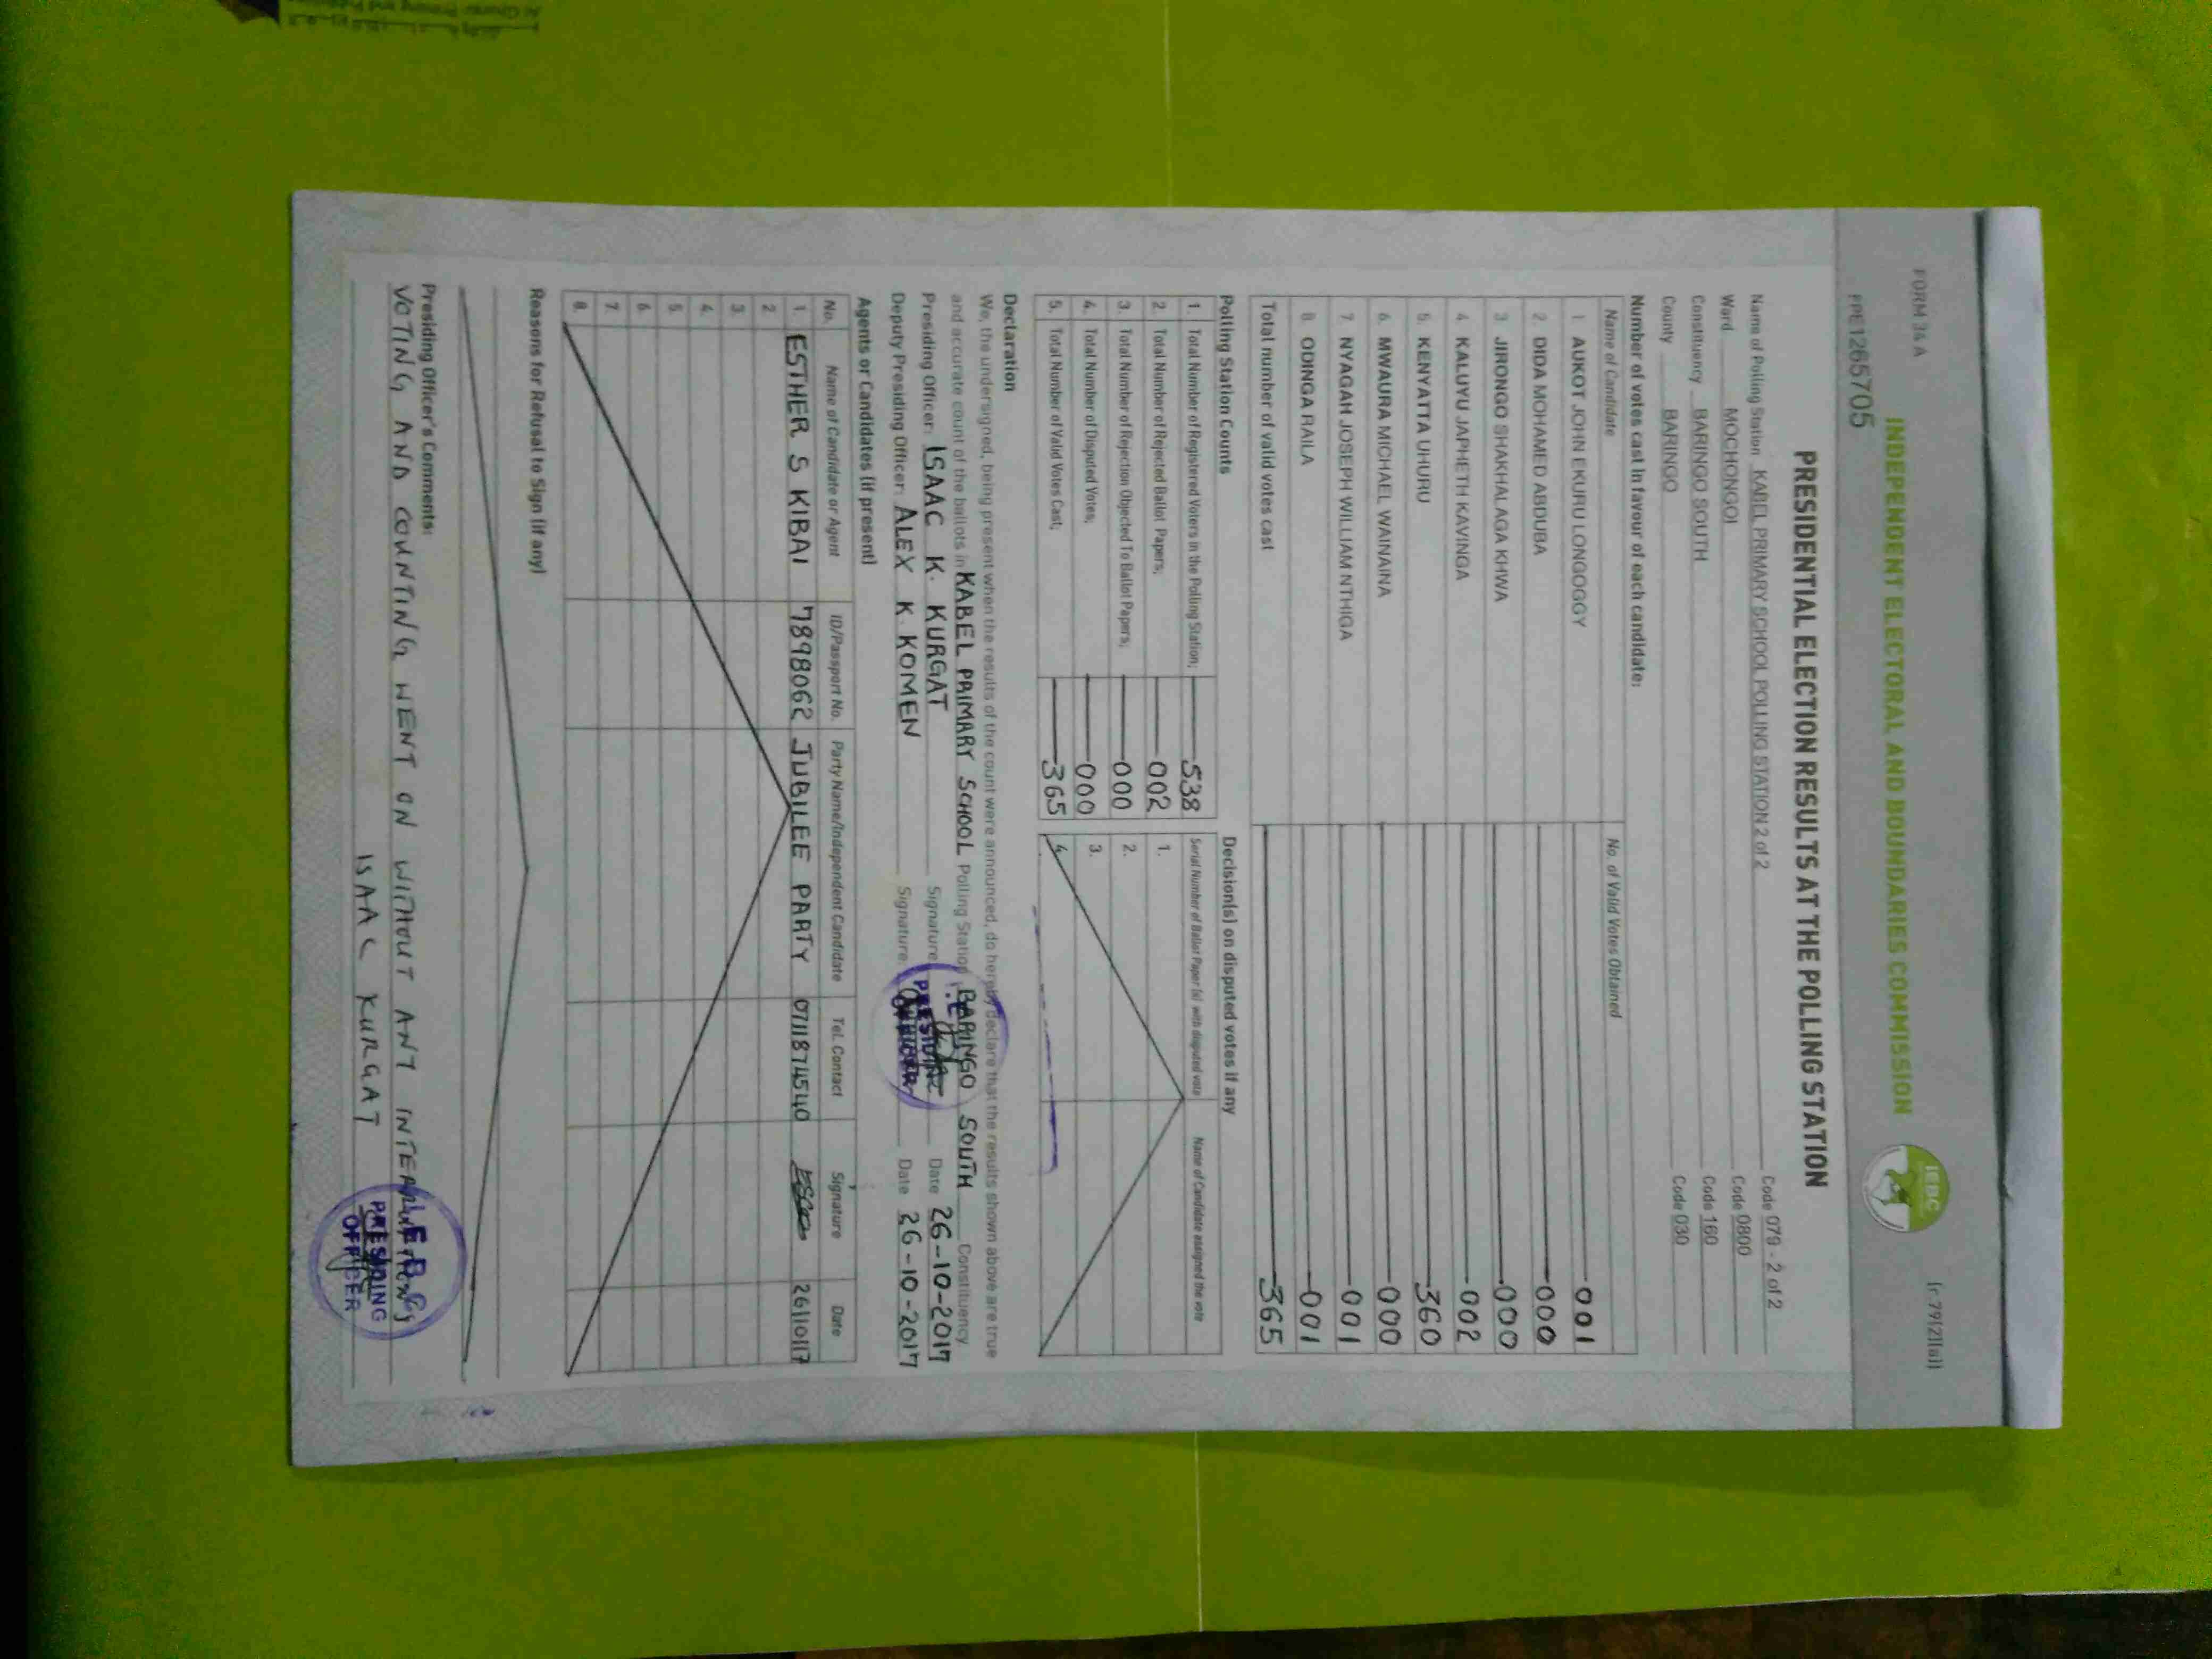 FORM 34 A
(r.79(2)(a))
INDEPENDENT ELECTORAL AND BOUNDARIES COMMISSION
IEBC
PPE1265705
PRESIDENTIAL ELECTION RESULTS AT THE POLLING STATION
Name of Polling Station KABEL PRIMARY SCHOOL POLLING STATION 2 of 2 Code 079 - 2 of 2
Ward MOCHONGOI Code 0800
Constituency BARINGO SOUTH Code 160
County BARINGO Code 030
Number of votes cast in favour of each candidate:
Name of Candidate No. of Valid Votes Obtained
1 AUKOT JOHN EKURU LONGOGGY 001
2. DIDA MOHAMED ABDUBA 000
3 JIRONGO SHAKHALAGA KHWA 000
4 KALUYU JAPHETH KAVINGA 002
5. KENYATTA UHURU 360
6. MWAURA MICHAEL WAINAINA 000
7. NYAGAH JOSEPH WILLIAM NTHIGA 001
8. ODINGA RAILA 001
Total number of valid votes cast 365
Polling Station Counts
1. Total Number of Registered Voters in the Polling Station; 538
2. Total Number of Rejected Ballot Papers; 002
3. Total Number of Rejection Objected To Ballot Papers; 000
4. Total Number of Disputed Votes; 000
5. Total Number of Valid Votes Cast; 365
Decision(s) on disputed votes if any
Serial Number of Ballot Paper (s) with disputed vote Name of Candidate assigned the vote
1.
2.
3.
4.
Declaration
We, the undersigned, being present when the results of the count were announced, do hereby declare that the results shown above are true
and accurate count of the ballots in KABEL PRIMARY SCHOOL Polling Station, BARINGO SOUTH Constituency
Presiding Officer: ISAAC K. KURGAT Signature Date 26-10-2017
Deputy Presiding Officer: ALEX K. KOMEN Signature: Date 26-10-2017
PRESIDING
OFFICER
Agents or Candidates (if present)
No. Name of Candidate or Agent ID/Passport No. Party Name/Independent Candidate Tel. Contact Signature Date
1 ESTHER S KIBAI 7898062 JUBILEE PARTY 0711874540 26/10/17
2
3.
4.
5.
6.
7.
8.
Reasons for Refusal to Sign (if any)
Presiding Officer's Comments:
VOTING AND COUNTING WENT ON WITHOUT ANY
ISAAC KURGAT
I.E.B.C
PRESIDING
OFFICER